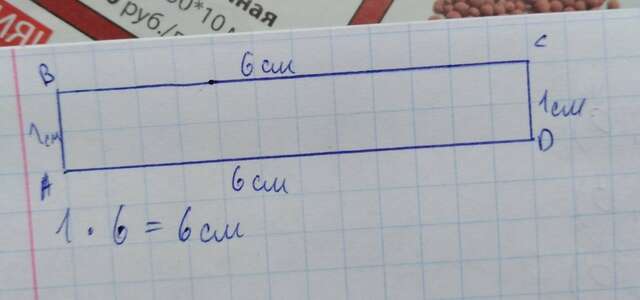 нная
00*10
руб./
ИЯ!
B
6 см
C
1 см
1 см
A
D
6 см
1 · 6 = 6 см